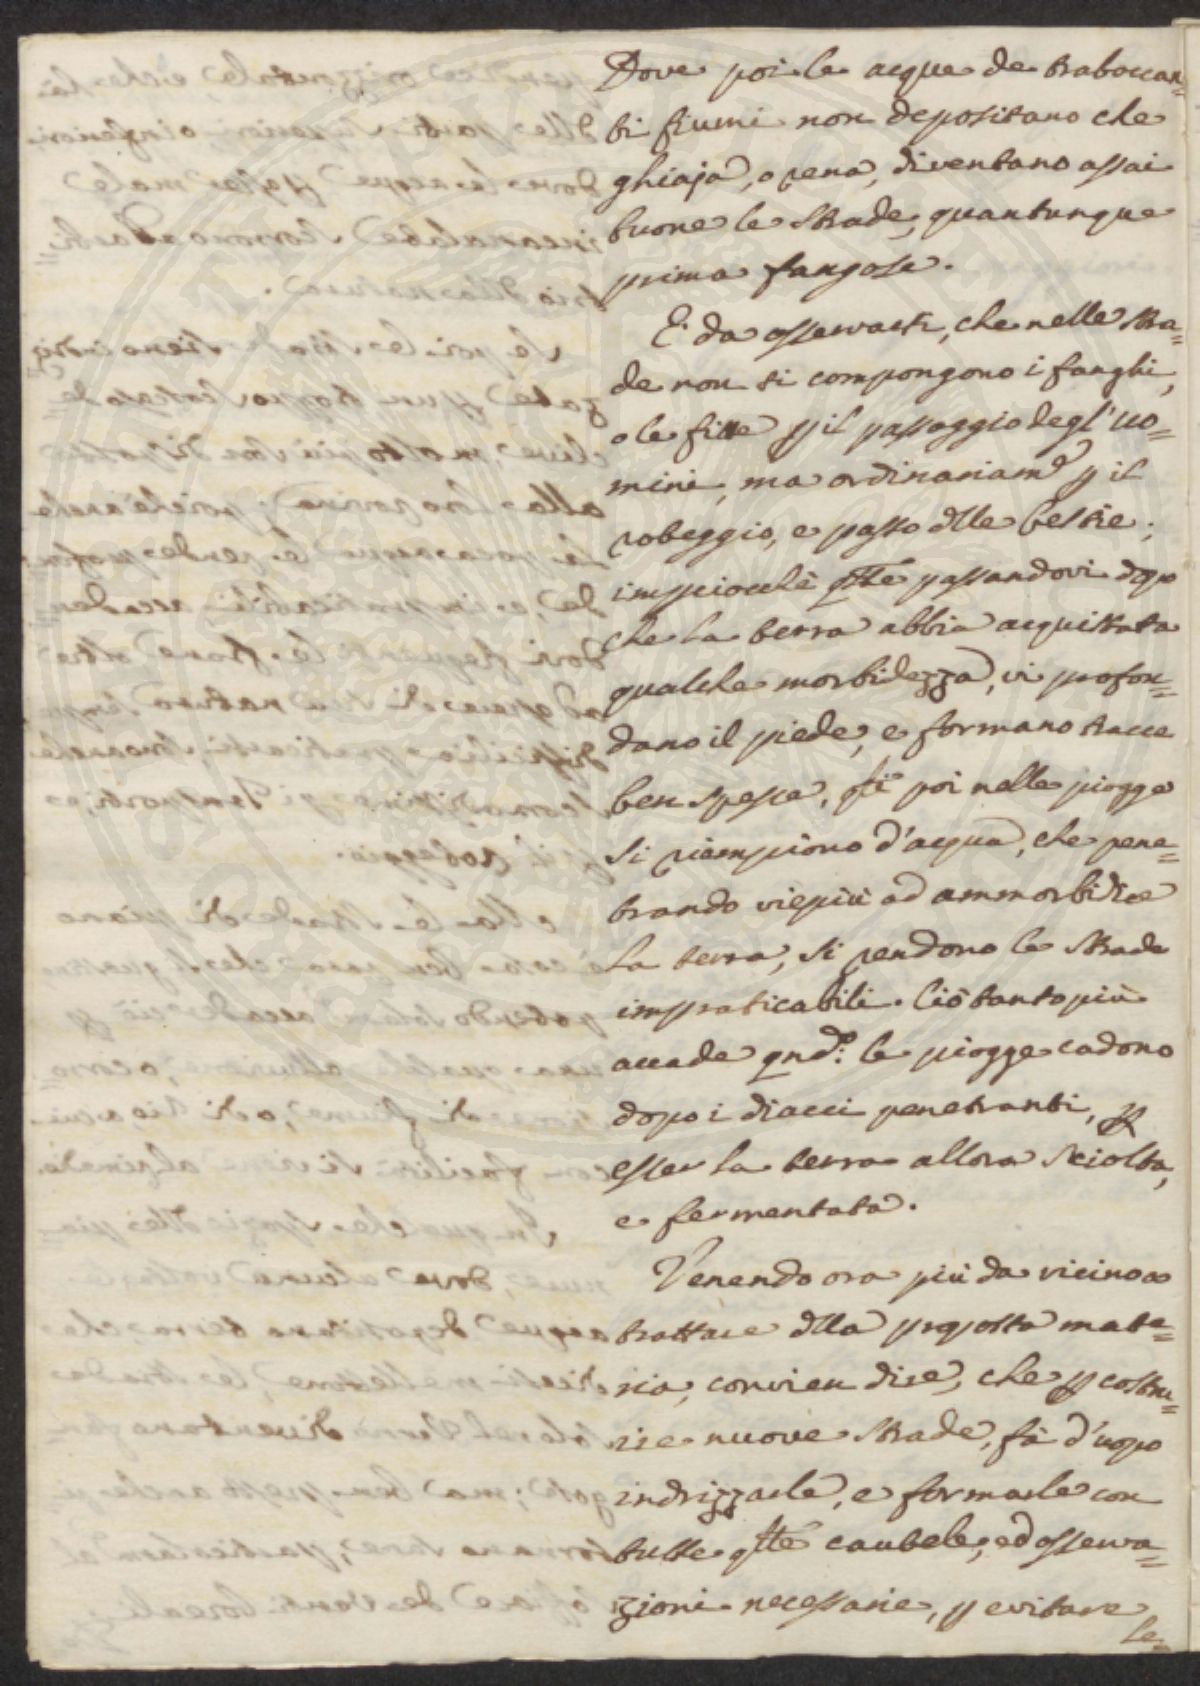 Dove poi le acque de traboccan=
ti fiumi non depositano che
ghiaja, o rena, diventano assai
buone le Strade, quantunque
prima fangose.
E' da osservarsi, che nelle stra=
de non si compongono i fanghi,
o le fitte p il passaggio degl' uo=
mini, ma ordinariamᵉ p il
robeggio, e passo dlle bestie;
impciocchè qtte passandovi dopo
che la terra abbia acquistata
qualche morbidezza, vi profon=
dano il piede, e formano tracce
ben spesse, qti poi nelle piogge
si riempiono d'acqua, che pene=
trando viepiù ad ammorbidire
la terra, si rendono le Strade
impraticabili. Ciò tanto più
accade qndᵒ: le piogge cadono
dopo i diacci penetranti, p
esser la terra allora sciolta,
e fermentata.
Venendo ora più da vicino a
trattare dlla pposta mate=
ria, convien dire, che p costru=
ire nuove Strade, fà d'uopo
indrizzarle, e formarle con
tutte qtte cautele, ed osserva=
zioni necessarie, p evitare
le=